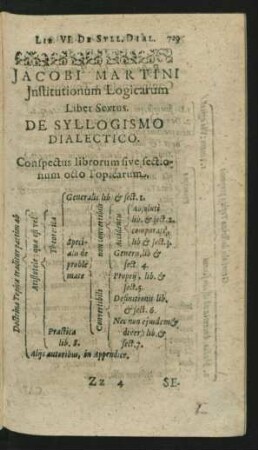 LIB. VI. DE SYLL. DIAL. 719
JACOBI MARTINI
Institutionum Logicarum
Liber Sextus.
DE SYLLOGISMO
DIALECTICO.
Conspectus librorum sive sectio-
num octo Topicarum.
Doctrina Topica traditur partim ab
Aristotele: quæ est vel
Theoretica
Generalis lib. & sect. 1.
Speci-
alis de
proble-
mate
non convertibili
Accidentis
absoluti
lib. & sect. 2.
comparati,
lib & sect. 3.
Generis, lib &
sect. 4.
Convertibili
Proprij, lib. &
sect. 5.
Definitionis lib.
& sect. 6.
Nec non ejusdem &
diversi lib. &
sect. 7.
Practica
lib. 8.
Alijs autoribus, in Appendice.
Zz 4
SE-